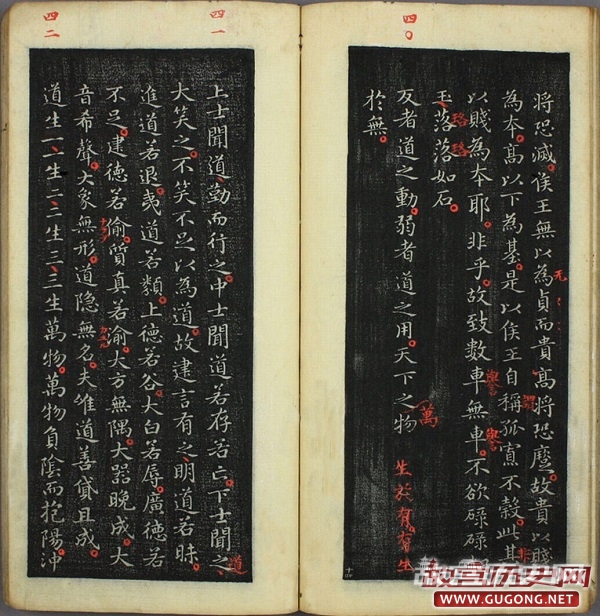 四〇
將恐滅侯王無以為貞而貴高將恐蹷故貴以賤
为本高以下為基是以侯王自稱孤寡不穀此其
以賤為本耶非乎故致數車無車不欲碌碌
玉落落如石
反者道之動弱者道之用天下之物生於有有生
於無
无
珞珞
譽
譽
萬
非
四一
四二
上士聞道勤而行之中士聞道若存若亡下士聞之
道
大笑之不笑不足以為道故建言有之明道若昧
進道若退夷道若類上德若谷大白若辱廣德若
不足建德若偷質真若渝大方無隅大器晚成大
音希聲大象無形道隱無名夫唯道善貸且成
道生一一生二二生三三生萬物萬物負陰而抱陽沖
故宫历史网
WWW.GUGONG.NET